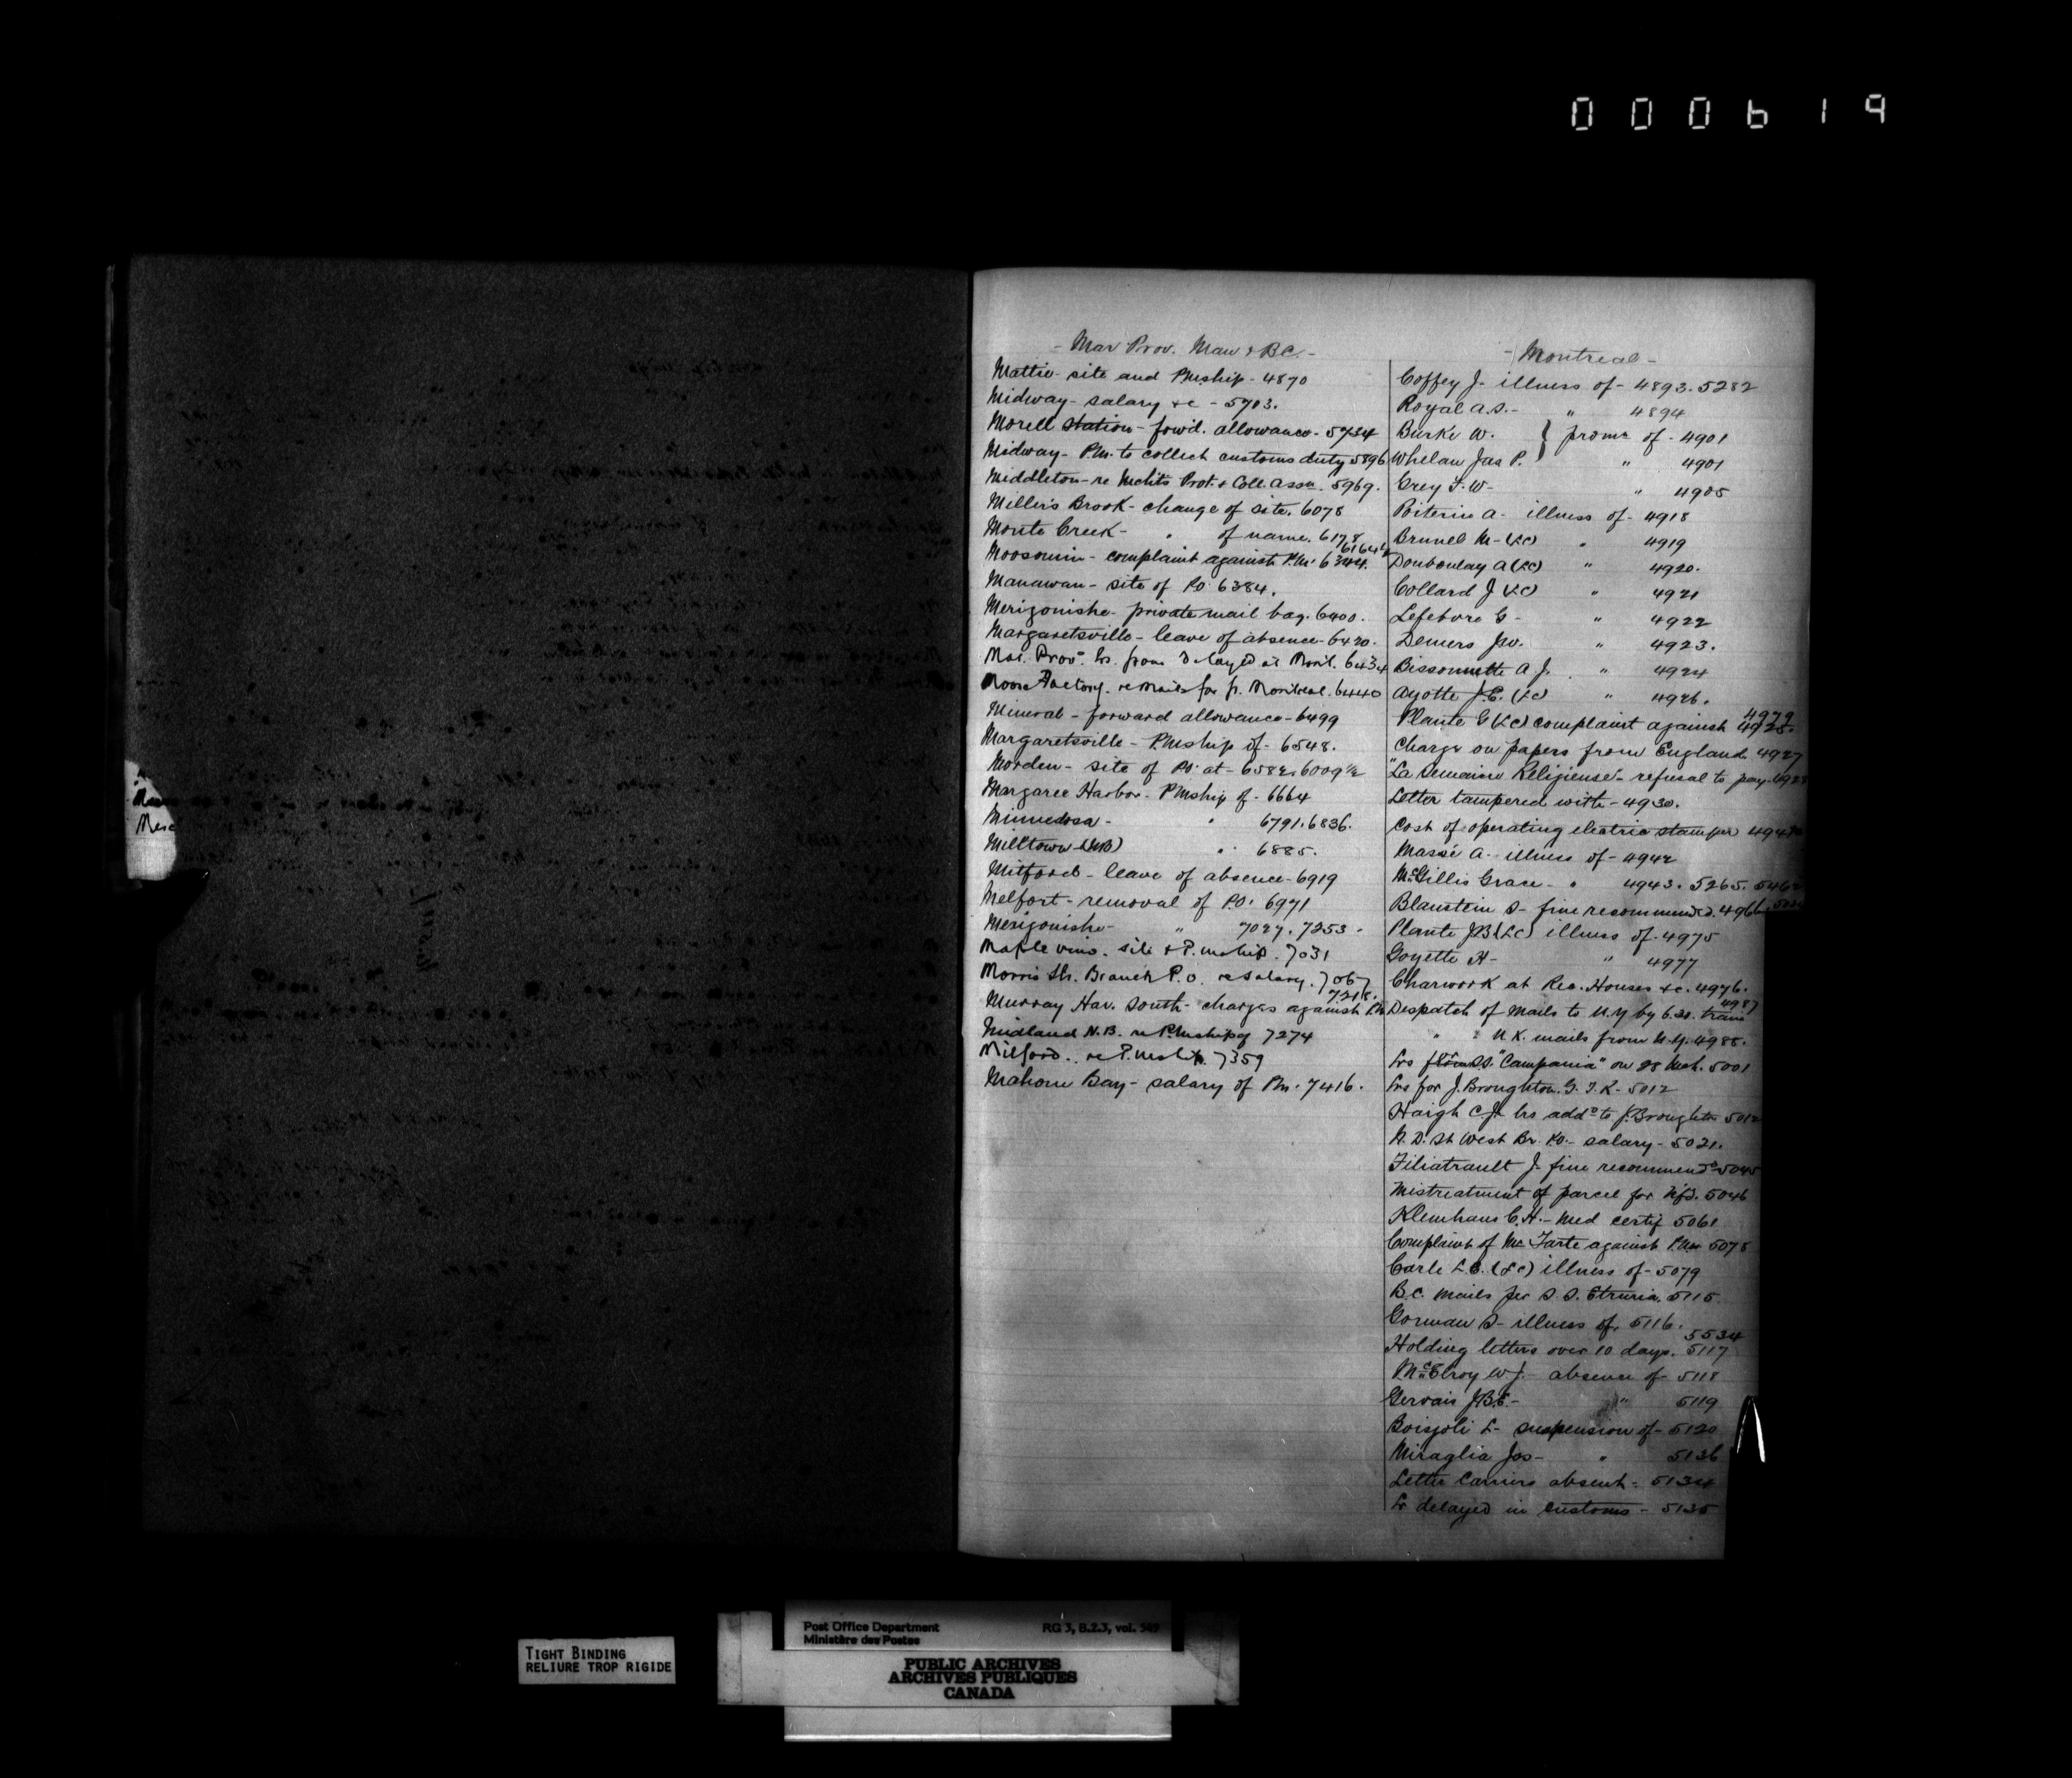 000619
- Mar Prov. Man & B.C. -
Mattie - site and PMship - 4870
Midway - salary &c - 5703.
Morell Station - forwd. allowance - 5734
Midway - P.M. to collect customs duty 5896
Middleton - re Mchts Prot. & Coll. Assn. 5969.
Millers Brook - change of site. 6078
Monte Creek - " of name. 6178
Moosomin - complaint against P.M. 6344.
Manawan - site of PO 6384.
Merigonishe - private mail bag. 6400.
Margaretsville - leave of absence - 6420.
Mar. Prov. lrs. from delayed at Montl. 6434
Moose Factory. re mails for fr. Montreal. 6440
Mineral - forward allowance - 6499
Margaretsville - PMship of - 6548.
Morden - site of PO at - 6582. 6009½
Margaree Harbor - PMship of - 6664
Minnedosa - " 6791. 6836.
Milltown (NB) " 6885.
Mitford - leave of absence - 6919
Melfort - removal of P.O. 6971
Merigonishe - " 7027. 7253 -
Maple vine. site & P.mship. 7031
Morris St. Branch P.O. re salary. 7067
7218.
Murray Har. South - charges against PM
Midland N.B. re PMship of 7274
Milford.. re P.mship. 7359
Mahone Bay - salary of PM. 7416.
- Montreal -
Coffey J. illness of - 4893. 5282
Royal A.S. - " 4894
Burke W. } prom. of - 4901
Whelan Jas P. " 4901
Grey F.W - " 4905
Poiterin A - illness of - 4918
Brunel M - (LC) " 4919
Douboulay A (LC) " 4920.
Collard J (LC) " 4921
Lefebvre G - " 4922
Demers Jno. " 4923.
Bissonnette A J. " 4924
Ayotte J.E. (LC) " 4926.
4979
Plante G (LC) complaint against 4925.
Charge on papers from England. 4927
"La Semaine Religieuse" - refusal to pay.
Letter tampered with - 4930.
Cost of operating electric stamper
Massé A - illness of - 4942
McGillis Grace - " 4943. 5265.
Blaustein S - fine recommend'd. 4966.
Plante JB (LC) illness of - 4975
Goyette H - " 4977
Charwork at Rec. Houses &c. 4976.
4987
Despatch of Mails to N.Y by 6.20. train
" " U.K. mails from N.Y. 4988.
Lrs from S.S. "Campania" on 28 Mch. 5001
Lrs for J. Broughton. G.T.R - 5012
Haigh C.Jr lrs addd to J. Broughton 5012
N.D. St West Br. P.O. - salary - 5021.
Filiatrault J - fine recommend'd 5045
Mistreatment of parcel for Nfd. 5046
Klemhaus C.H. - Med certif 5061
Complaint of Mr Tarte against P.M. 5078
Carle L.E. (LC) illness of - 5079
B.C. Mails per S.S. Etruria. 5115
Gorman S - illness of. 5116.
5534
Holding letters over 10 days. 5117
McElroy W J. - absence of - 5118
Gervais J.B.E. - " 5119
Boisjoli L - suspension of - 5120
Miraglia Jos - " 5136
Letter Carriers absent - 5134
Lr delayed in customs - 5135
TIGHT BINDING
RELIURE TROP RIGIDE
Post Office Department RG 3, B.2.3, vol. 549
Ministère des Postes
PUBLIC ARCHIVES
ARCHIVES PUBLIQUES
CANADA